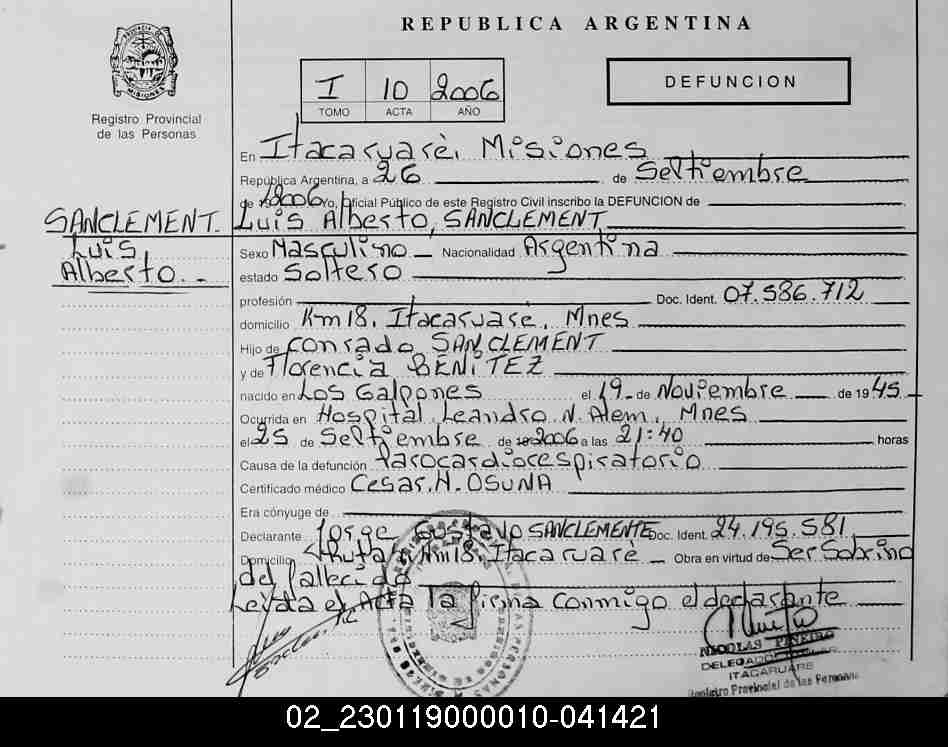 REPUBLICA ARGENTINA
PROVINCIA D
MISIONES
Registro Provincial
de las Personas
I 10 2006
TOMO ACTA AÑO
DEFUNCION
En Itacaruarè, Misiones
República Argentina, a 26 de Seltiembre
de 2006 Yo, Oficial Público de este Registro Civil inscribo la DEFUNCION de
SANCLEMENT. Luis Alberto, SANCLEMENT
Luis
Alberto. -
Sexo Masculino Nacionalidad Argentina
estado Soltero
profesión Doc. Ident. 07.586.712
domicilio Km 18. Itacaruare, Mnes
Hijo de Conrado SANCLEMENT
y de Florencia BENITEZ
nacido en Los Galpones el 19 de Noviembre de 1945
Ocurrida en Hospital Leandro N. Alem, Mnes
el 25 de Seltiembre de 2006 a las 21:40 horas
Causa de la defunción Parocardiorespiratorio
Certificado médico Cesar. H. OSUNA
Era cónyuge de
Declarante Jorge Gustavo SANCLEMENTE Doc. Ident. 24.195.581
Domicilio Ruta Km18. Itacaruare Obra en virtud de Ser Sobrino
del fallecido
Leyda el Acta la firma conmigo el declarante
NICOLAS PIÑEIRO
DELEGADO TITULAR
ITACARUARE
Registro Provincial de las Personas
02_230119000010-041421